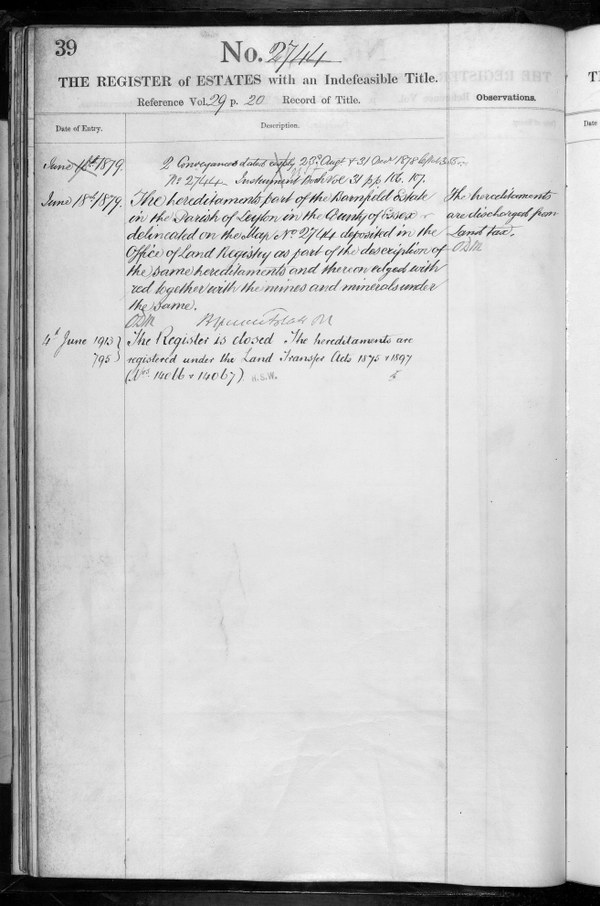 39
No. 2744
THE REGISTER of ESTATES with an Indefeasible Title.
Reference Vol. 29 p. 20 Record of Title.
Observations.
Date of Entry.
Description.
June 1879.
2 Conveyances dated 23rd Augt & 31 1878
No 2744 Instrument Book Vol 31 pp 186. 187.
June 18th 1879.
The hereditaments part of the Bamfield Estate
in the Parish of Leyton in the County of Essex
delineated on the Map No 2744 deposited in the
Office of Land Registry as part of the description of
the same hereditaments and thereon edged with
red together with the mines and minerals under
the same.
The hereditaments
are discharged from
Land tax.
4th June 1913
795
The Register is closed The hereditaments are
registered under the Land Transfer Acts 1875 & 1897
(Nos. 14066 & 14067) H.S.W.